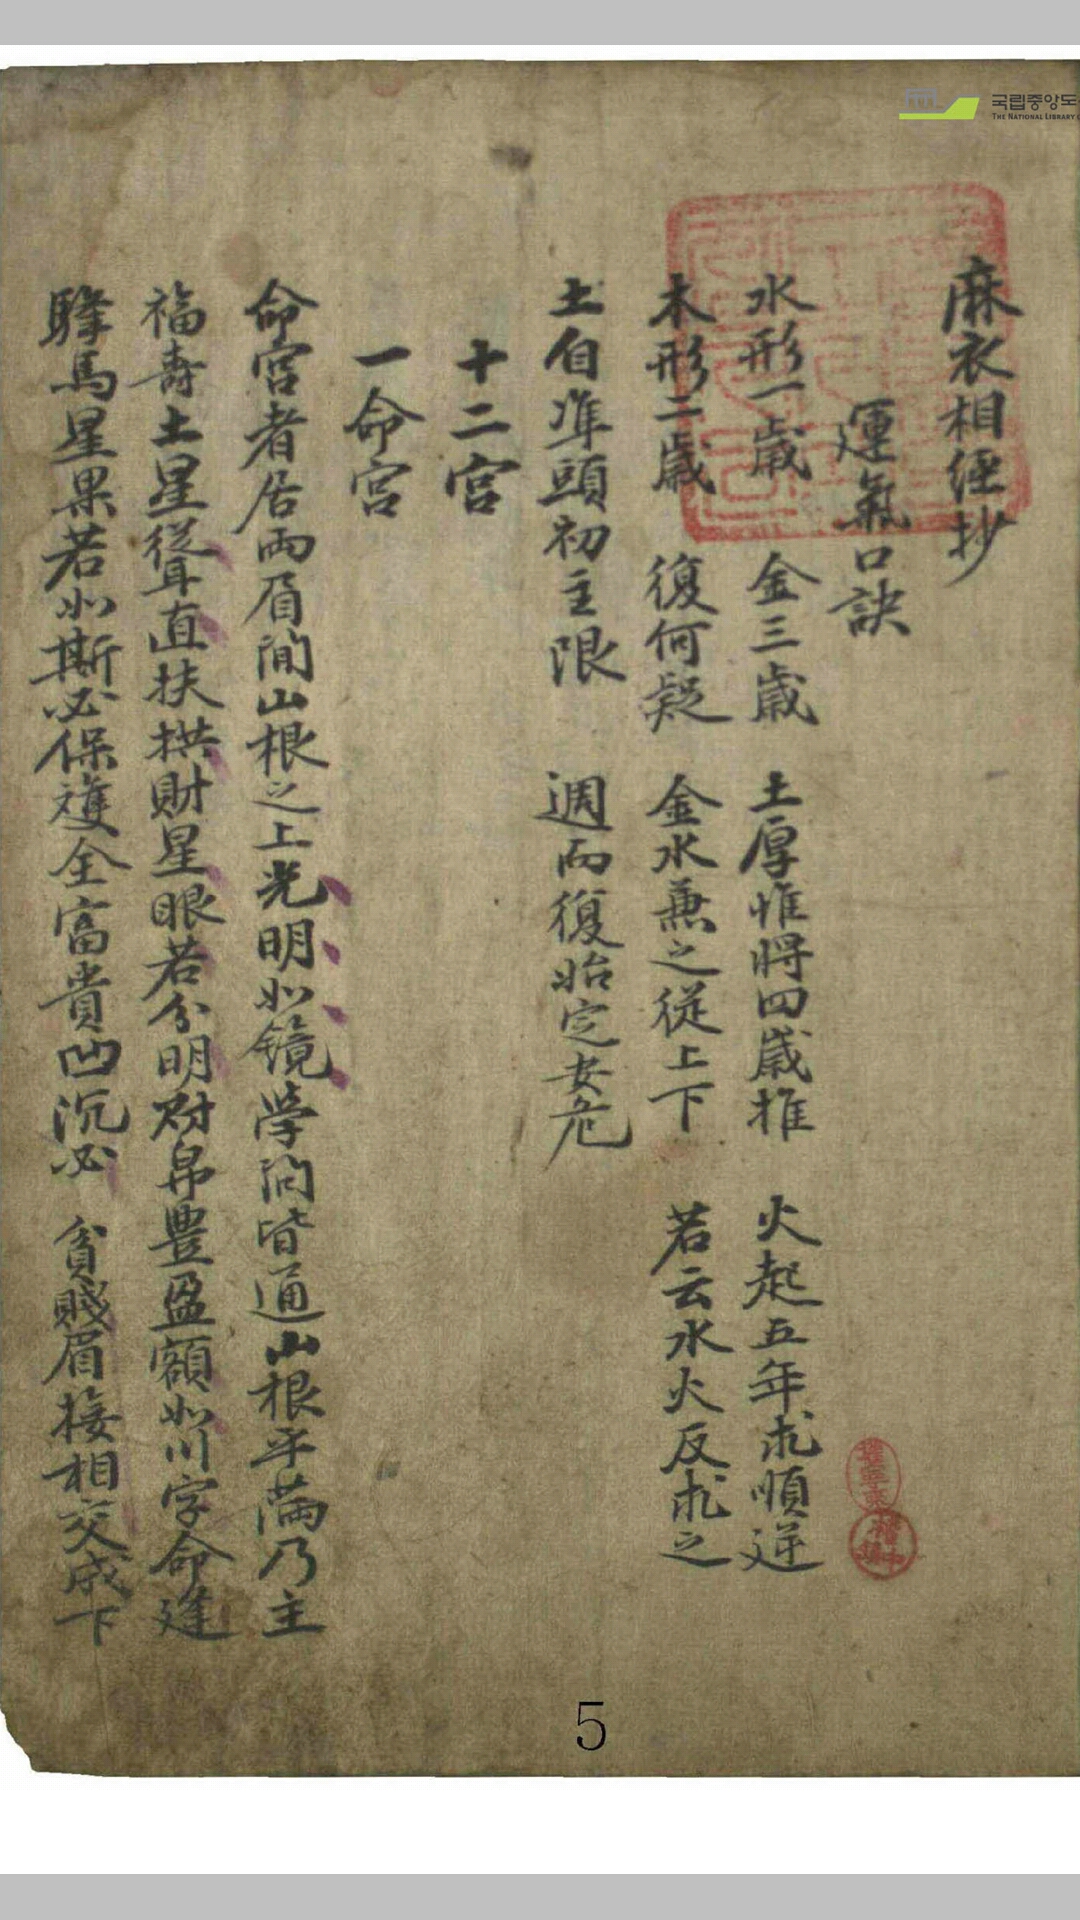 국립중앙도
THE NATIONAL LIBRARY
麻衣相経抄
運氣口訣
水形一歲 金三歲 土厚惟將四歲推 火起五年求順逆
木形二歲 復何疑 金水兼之從上下 若云水火反求之
土自準頭初主限 週而復始定安危
十二宮
一命宮
命宮者居両眉間山根之上光明如鏡學問皆通山根平滿乃主
福壽土星聳直扶拱財星眼若分明財帛豊盈額如川字命逢
驛馬星果若如斯必保雙全富貴凹沉必 貧賤眉接相交成下
5